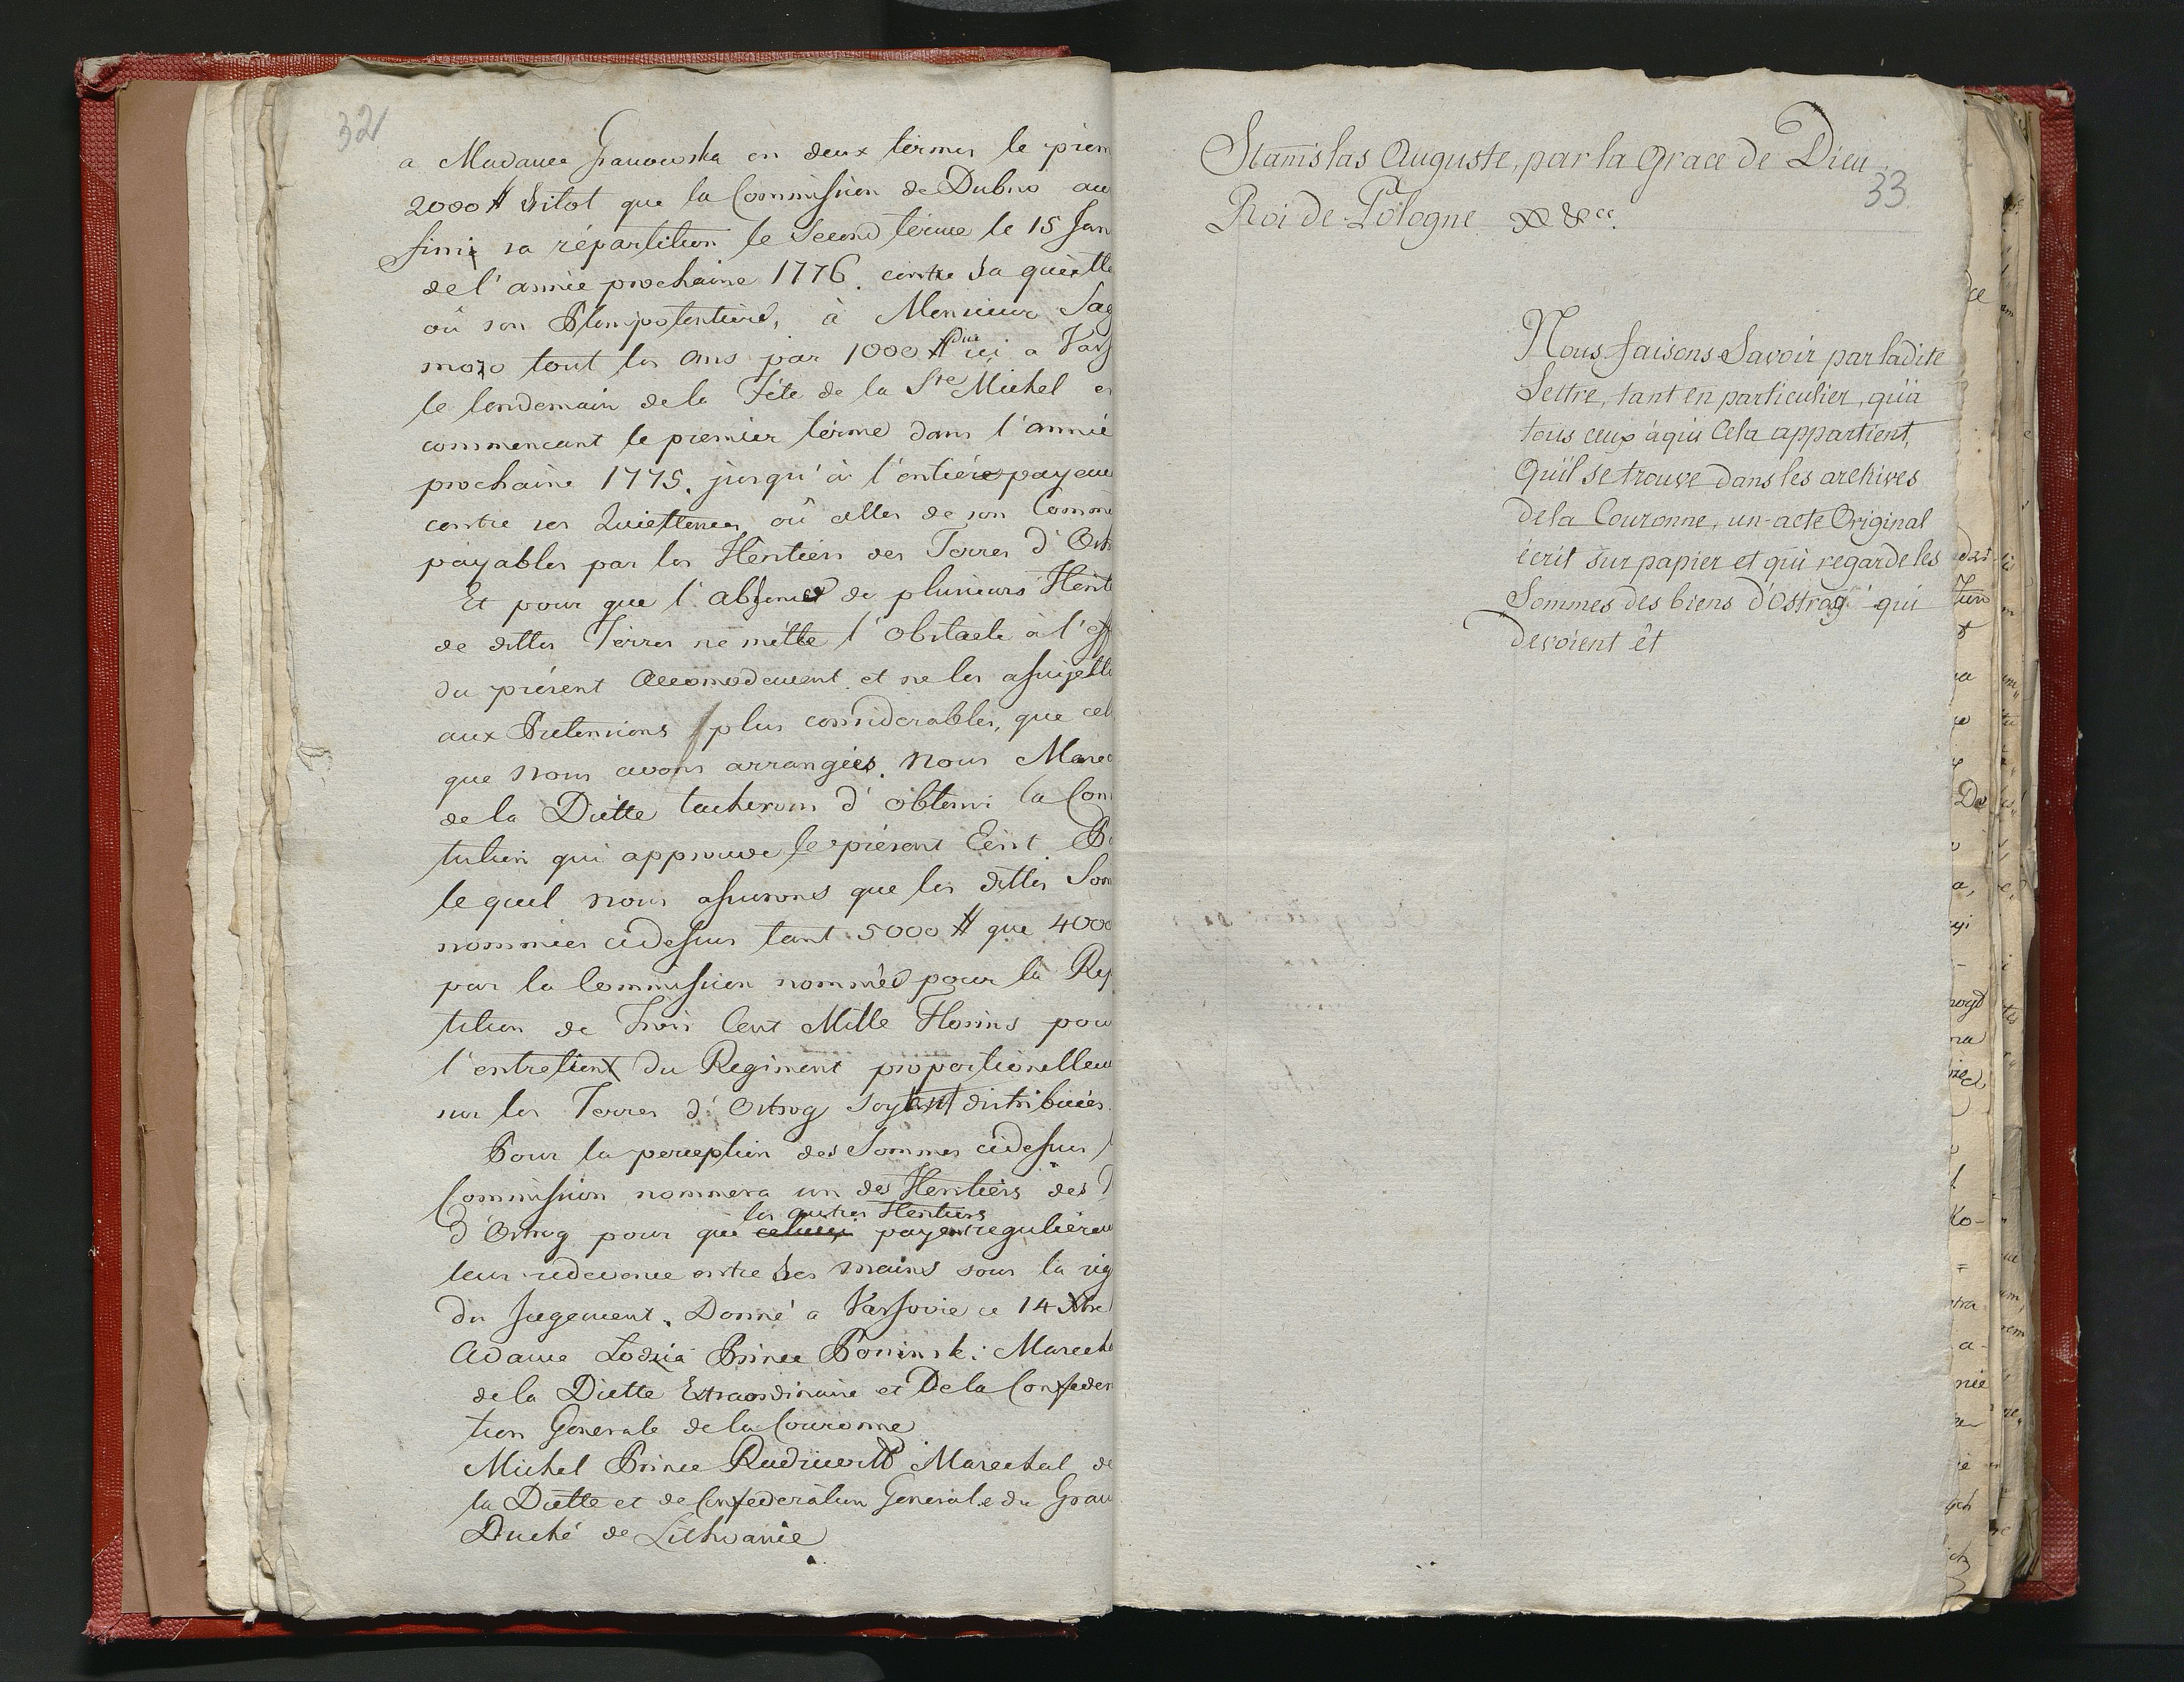 32
a Madame Granowska en deux termes le prem
2000 # sitot que la Commission de Dubno au
fini sa répartition le Second terme le 15 Jan
de l'année prochaine 1776. contre sa quiette
où son Plenipotentiere, à Monsieur Sag
mozo tout les ans par 1000 # Duc ici a Vars
le lendemain de la Fête de la Ste Michel en
commencant le premier terme dans l'année
prochaine 1775. jusqu'à l'entière payeme
contre ses Quiettences où celles de son Commi
payables par les Heritiers des Terres d'Ostr
Et pour que l'absence de plusieurs Herit
de dittes Terres ne mette l'obstacle à l'eff
du présent Accomodement et ne les assujette
aux Pretensions plus considerables, que cel
que nous avons arrangées. Nous Marec
de la Diette tacherons d'obtenir la Cons
tution qui approuve le présent Ecrit Pa
lequel nous assurons que les dittes Som
nommées cidessus tant 5000 # que 4000
par la Commission nommée pour la Rep
tition de Trois Cent Mille Florins pour
l'entretien du Regiment proportionellem
sur les Terres d'Ostrog soyent distribuées.
Pour la perception des Sommes cidessus
Commission nommera un des Heritiers des T
les autres Heritiers
d'Ostrog pour que celuici payent regulièrem
leur redevence entre ses mains sous la rig
du Jugement. Donné a Varsovie ce 14 Xbre
Adame Lodzia Prince Poninski Marecha
de la Diette Extraordinaire et De la Confeder
tion Generale de la Couronne
Michel Prince Radziwill Marechal de
la Diette et de Confederation Generale du Gran
Duché de Lithvanie
Stanislas Auguste, par la Grace de Dieu
33.
Roi de Pologne &&cc.
Nous faisons Savoir par ladite
Lettre, tant en particulier, qu'à
tous ceux àqui Cela appartient,
Qu'il se trouve dans les archives
de la Couronne, un acte Original
écrit sur papier et qui regarde les
Sommes des biens d'Ostrog qui
devoient êt